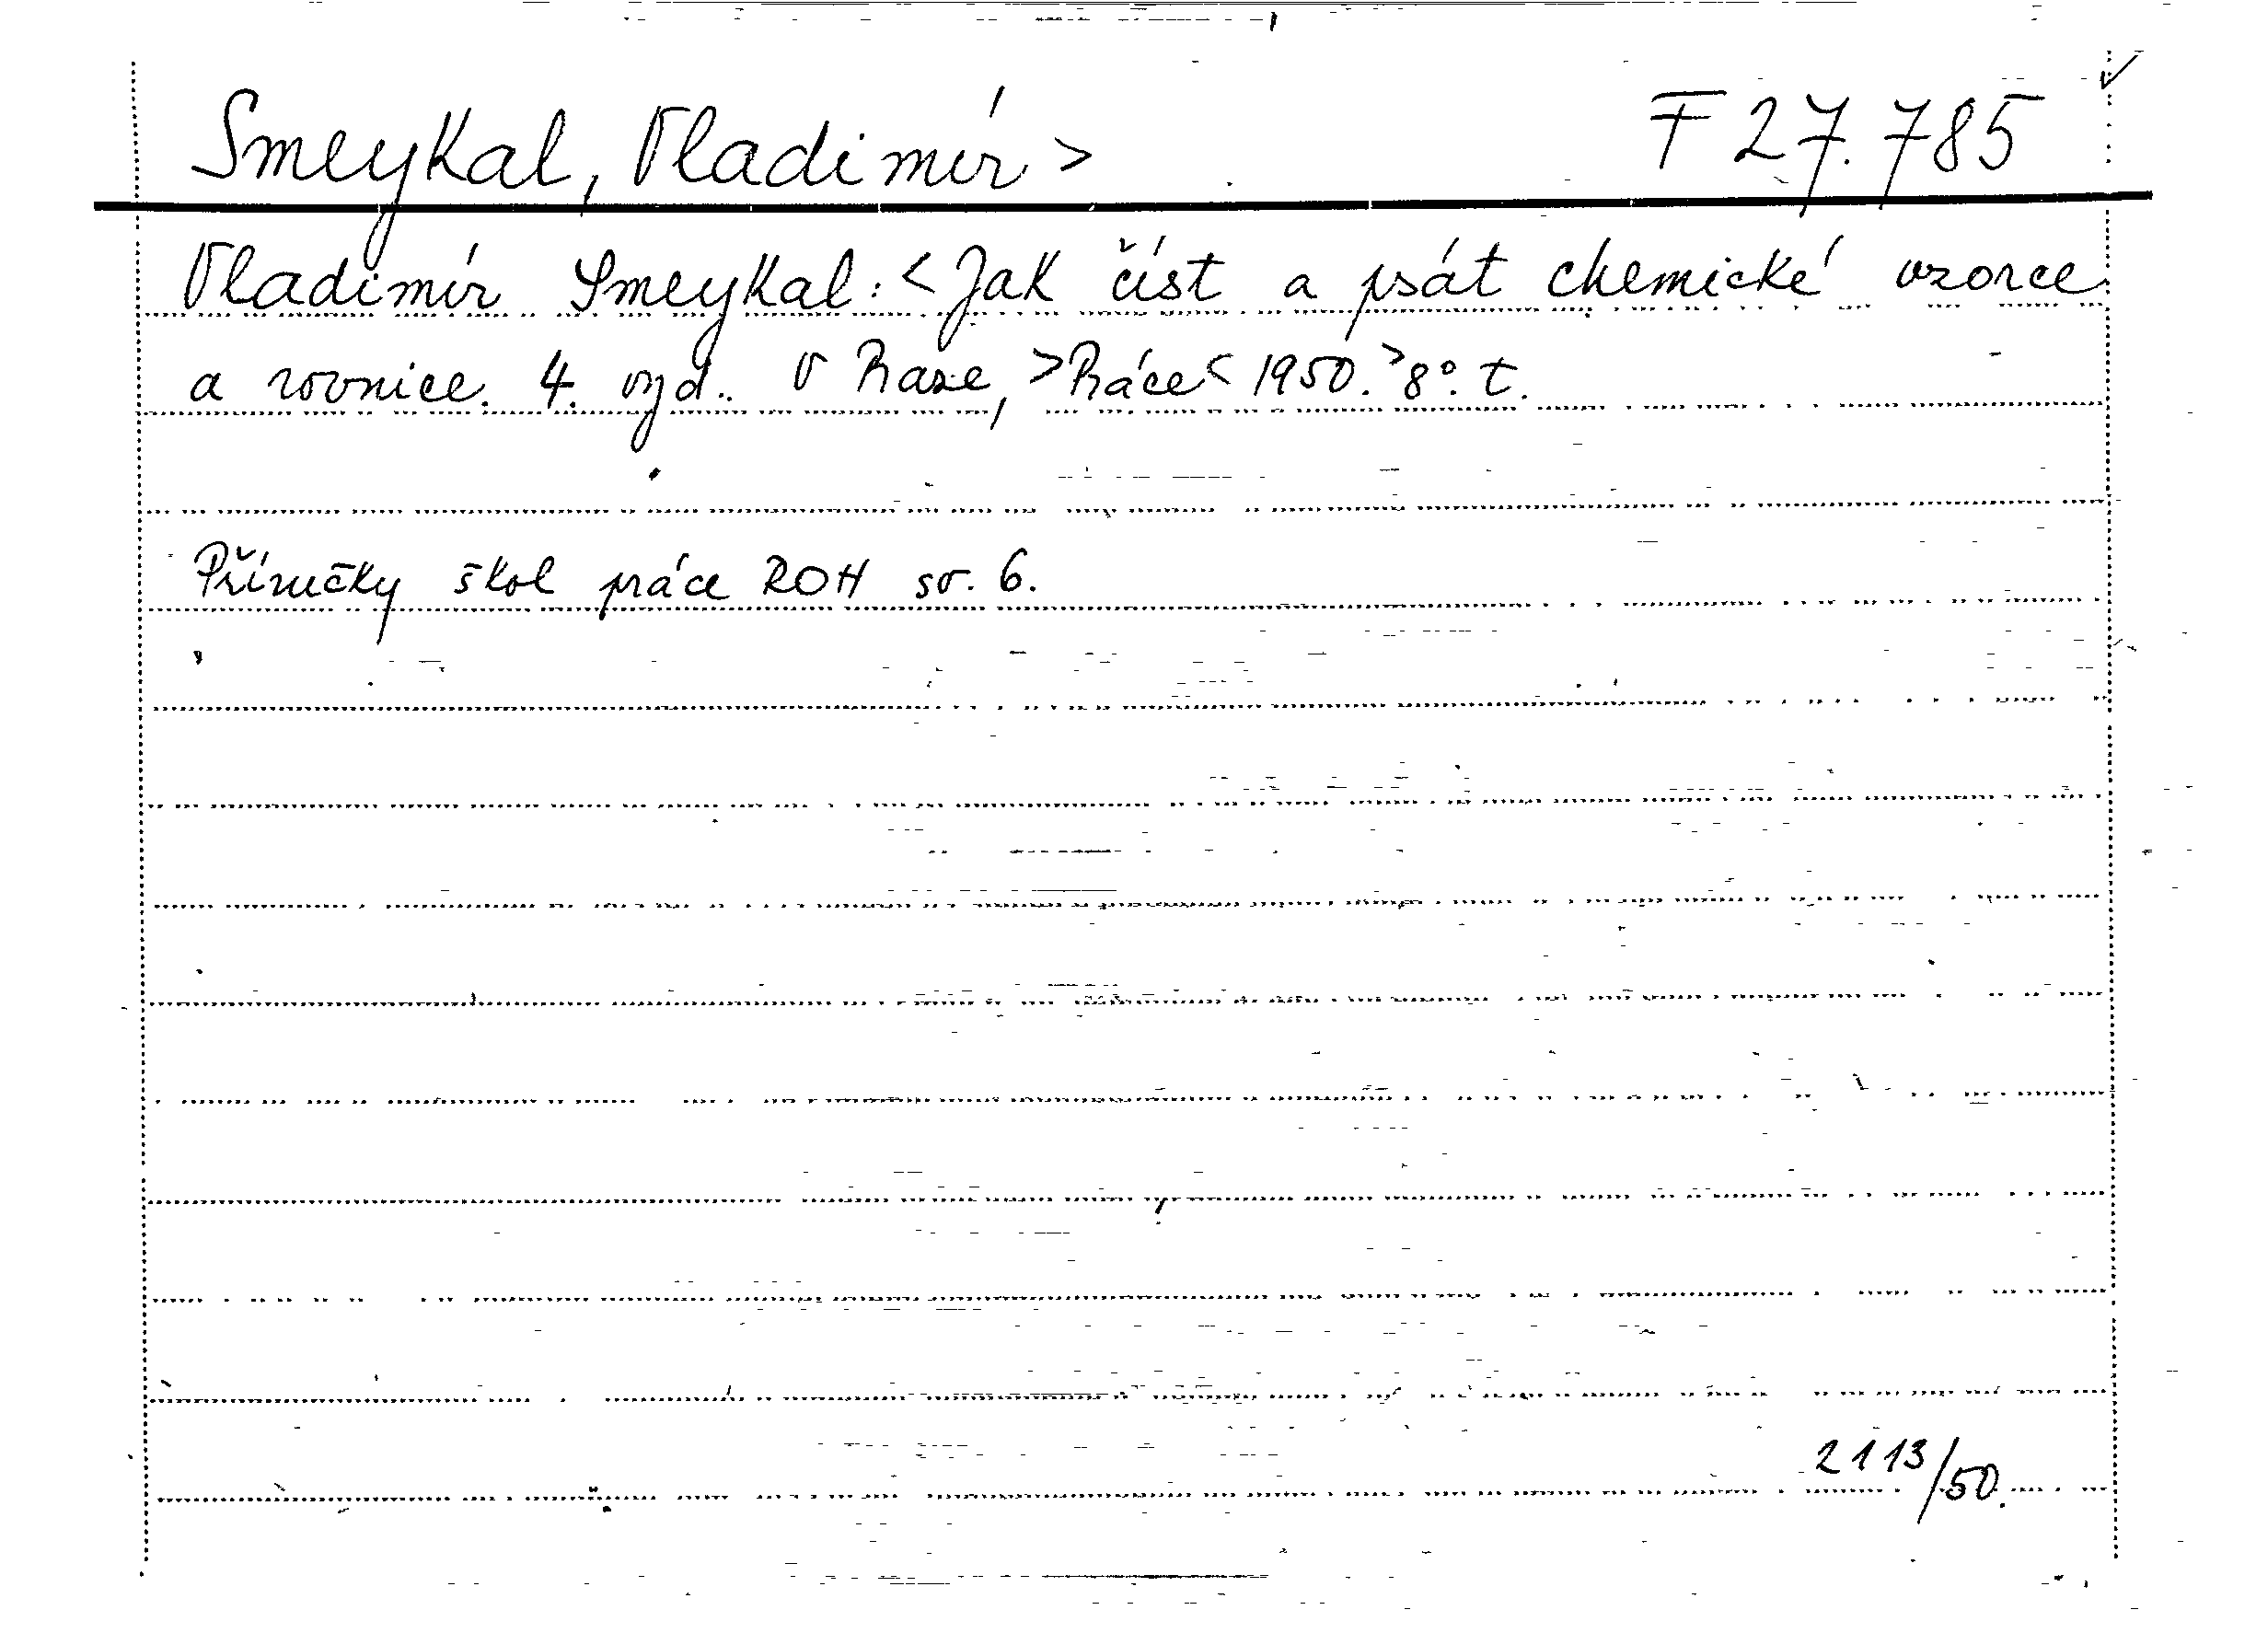 Smeykal, Vladimír > F 27.785
Vladimír Smeykal: < Jak číst a psát chemické vzorce
a rovnice. 4. vyd. V Praze, >Práce< 1950.> 8°. t.
Příručky škol práce ROH sv. 6.
2113/50.